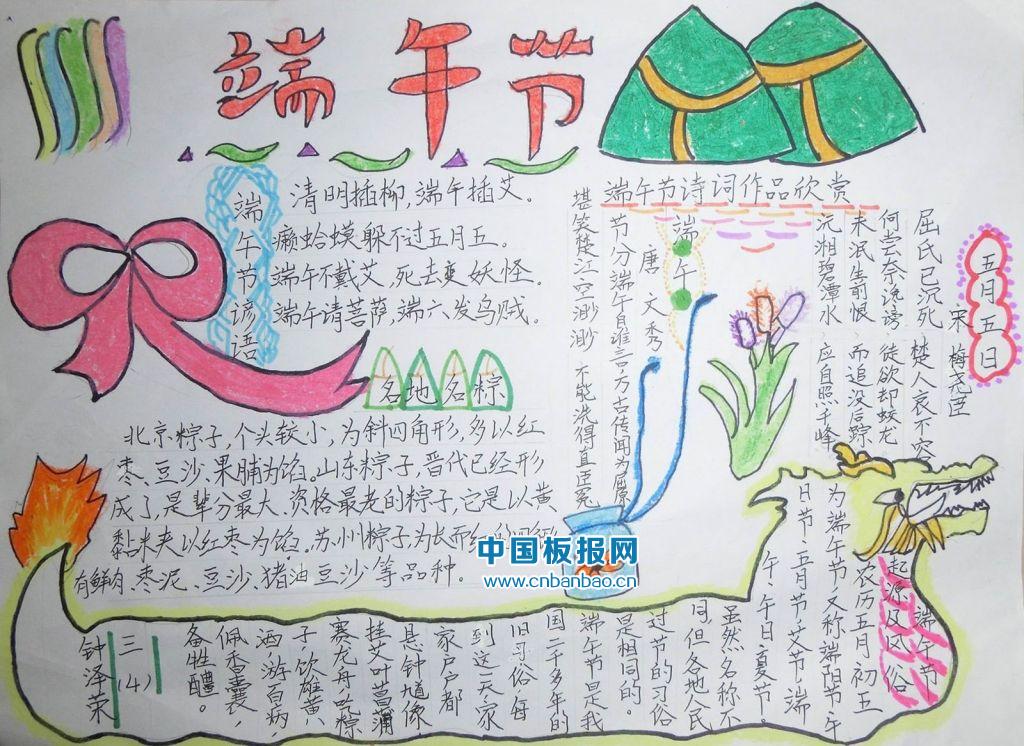 端午节
端午节谚语
清明插柳,端午插艾。
癞蛤蟆躲不过五月五。
端午不戴艾,死去变妖怪。
端午请菩萨,端六发乌贼。
各地名粽
北京粽子,个头较小,为斜四角形,多以红
枣、豆沙、果脯为馅。山东粽子,晋代已经形
成了,是辈分最大、资格最老的粽子,它是以黄
黏米夹以红枣为馅。苏州粽子为长而细
有鲜肉、枣泥、豆沙、猪油豆沙等品种。
端午节诗词作品欣赏
五月五日
宋 梅尧臣
屈氏已沉死 楚人哀不容
何尝奈谗谤 徒欲却蛟龙
未泯生前恨 而追没后踪
沅湘碧潭水 应自照千峰
端午
唐 文秀
节分端午自谁言,万古传闻为屈原
堪笑楚江空渺渺 不能洗得直臣冤
端午节
起源及风俗
农历五月初五
为端午节,又称端阳节、午
日节、五月节、艾节、端
午、午日、夏节。
虽然名称不
同,但各地人民
过节的习俗
是相同的。
端午节是我
国二千多年的
旧习俗,每
到这一天,家
家户户都
悬钟馗像,
挂艾叶菖蒲
赛龙舟,吃粽
子,饮雄黄
酒,游百病,
佩香囊,
备牲醴。
三(4)
钟泽荣
中国板报网
www.cnbanbao.cn